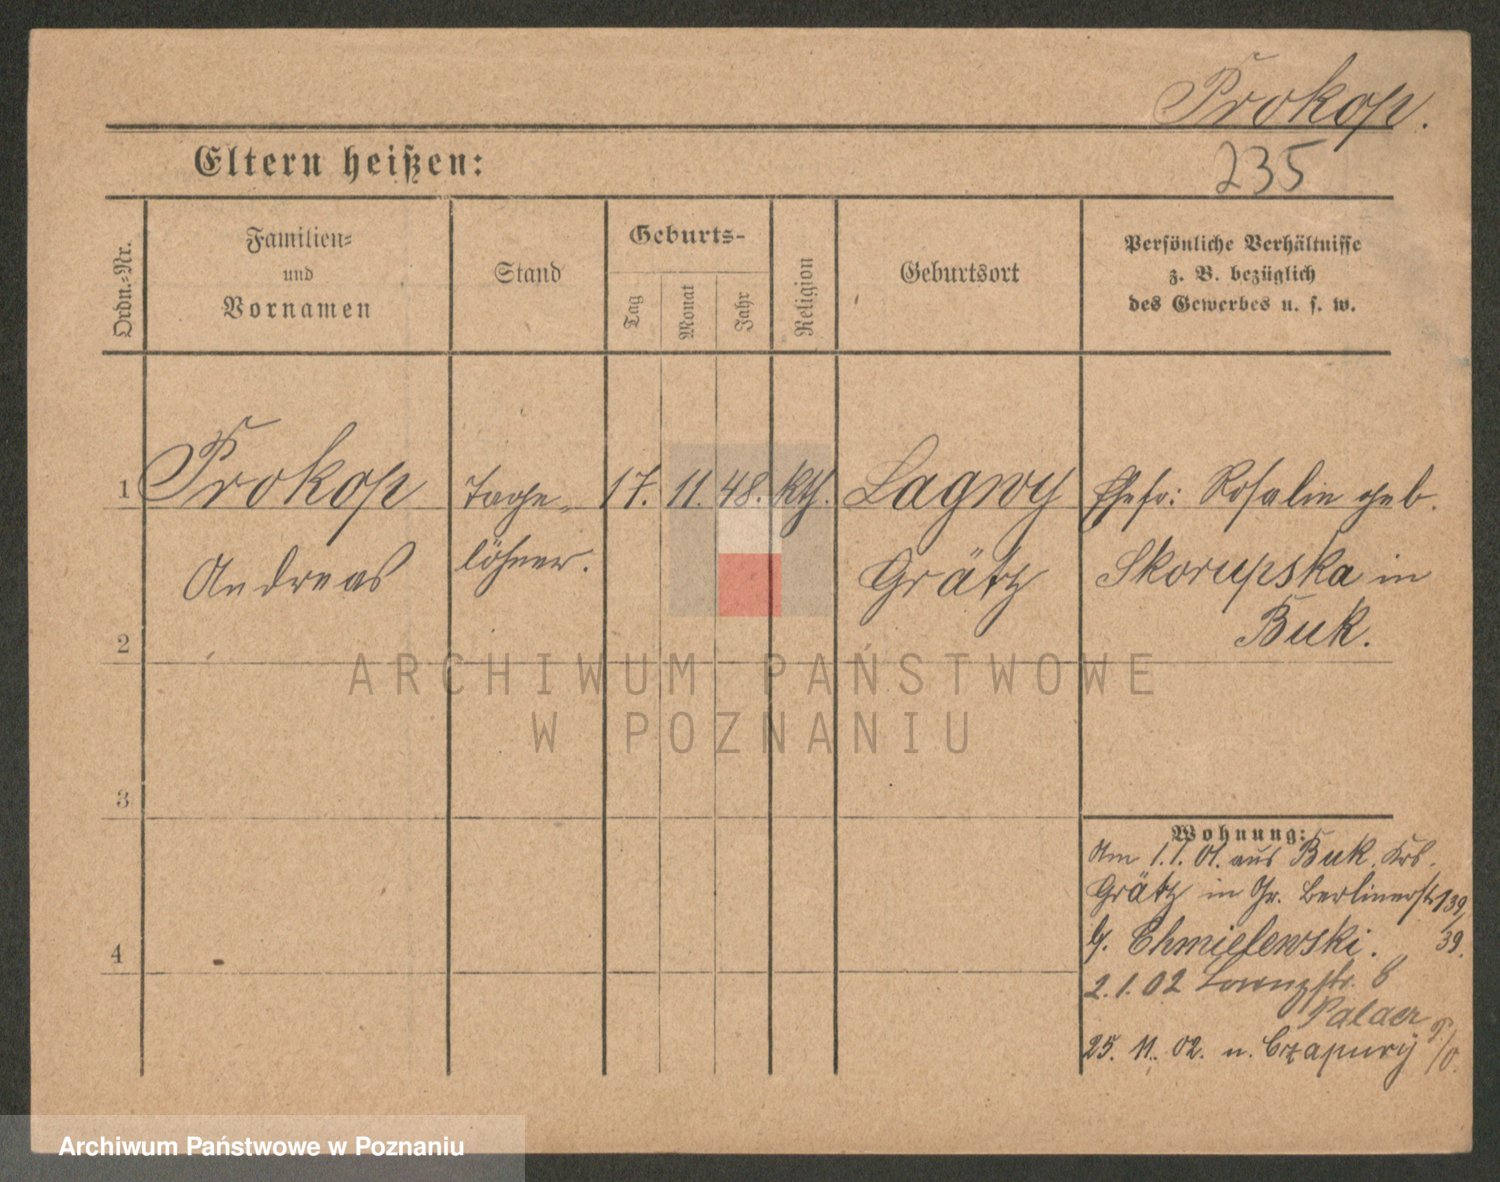 Prokop.
235
Eltern heißen:
Ordn.-Nr.
Familien-
und
Vornamen
Stand
Geburts-
Tag
Monat
Jahr
Religion
Geburtsort
Persönliche Verhältnisse
z. B. bezüglich
des Gewerbes u. s. w.
1 Prokop Tage- 17. 11. 48. kth. Lagwy Ehefr: Rosalie geb.
Andreas löhner. Grätz Skorupska in
Buk.
2
3
4
Wohnung:
Am 1.1.01. aus Buk, Krs.
Grätz in Gr. Berlinerstr 139/
39.
b. Chmielewski.
2.1.02 Lorenzstr. 8
Palacz
25. 11. 02. n. Czapury P/O.
ARCHIWUM PAŃSTWOWE
W POZNANIU
Archiwum Państwowe w Poznaniu